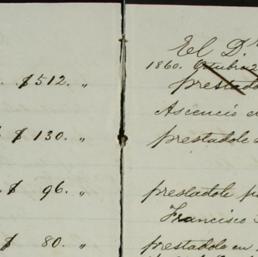 $512. "
$130. "
$ 96. "
$ 80. "
El D.
1860. Octubre 2
prestado
Ascencio
prestadole
prestadole
Francisco
prestadole en